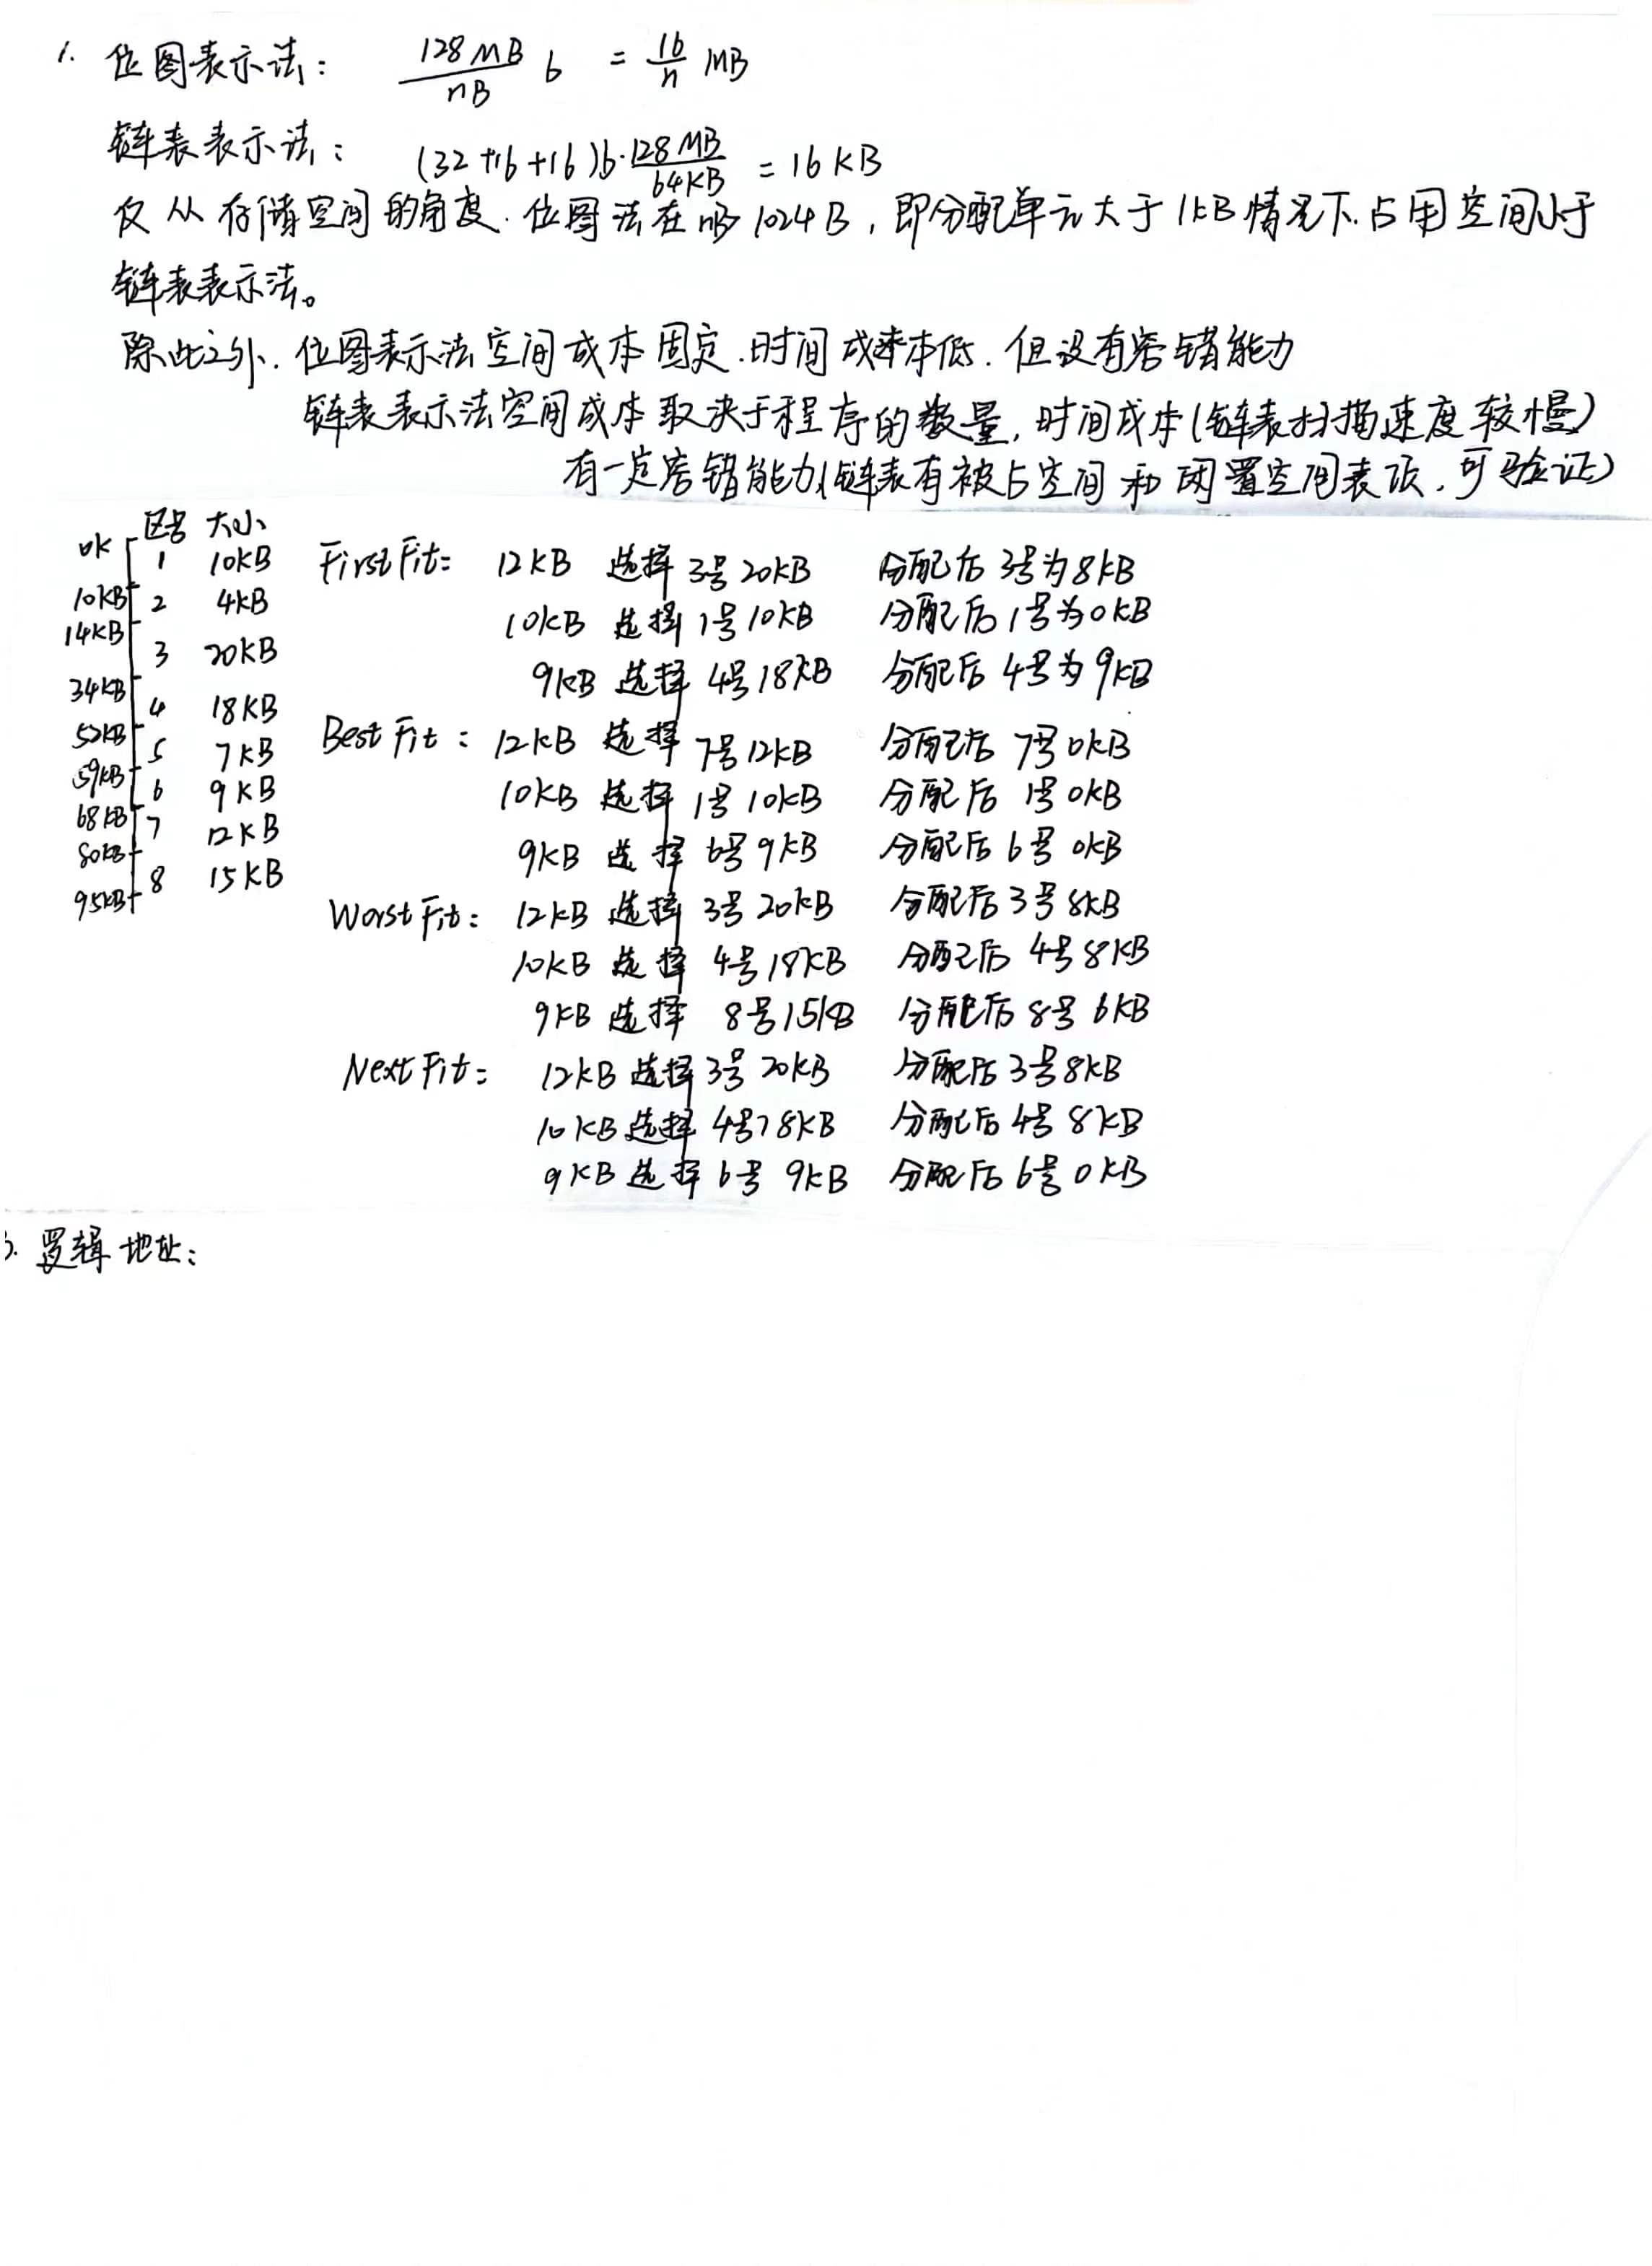 1. 位图表示法： 128MB/nB b = 16/n MB
链表表示法： (32+16+16)b·128MB/64KB = 16KB
仅从存储空间的角度.位图法在n>1024B，即分配单元大于1kB情况下.占用空间小于
链表表示法。
除此之外.位图表示法空间成本固定.时间成本低.但没有容错能力
链表表示法空间成本取决于程序的数量，时间成本(链表扫描速度较慢)
有一定容错能力(链表有被占空间和闲置空间表项，可验证)
区号 大小
0K 1 10KB
10KB 2 4KB
14KB 3 20KB
34KB 4 18KB
52KB 5 7KB
59KB 6 9KB
68KB 7 12KB
80KB 8 15KB
95KB
First Fit: 12KB 选择 3号 20KB 分配后 3号为8KB
10KB 选择 1号 10KB 分配后 1号为0KB
9KB 选择 4号 18KB 分配后 4号为9KB
Best Fit: 12KB 选择 7号 12KB 分配后 7号 0KB
10KB 选择 1号 10KB 分配后 1号 0KB
9KB 选择 6号 9KB 分配后 6号 0KB
Worst Fit: 12KB 选择 3号 20KB 分配后 3号 8KB
10KB 选择 4号 18KB 分配后 4号 8KB
9KB 选择 8号 15KB 分配后 8号 6KB
Next Fit: 12KB 选择 3号 20KB 分配后 3号 8KB
10KB 选择 4号 18KB 分配后 4号 8KB
9KB 选择 6号 9KB 分配后 6号 0KB
3. 逻辑地址：